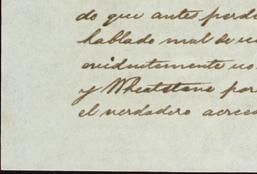 do que antes perdi
hablado mal de
evidentemente
y Wheatstone por
el verdadero acree